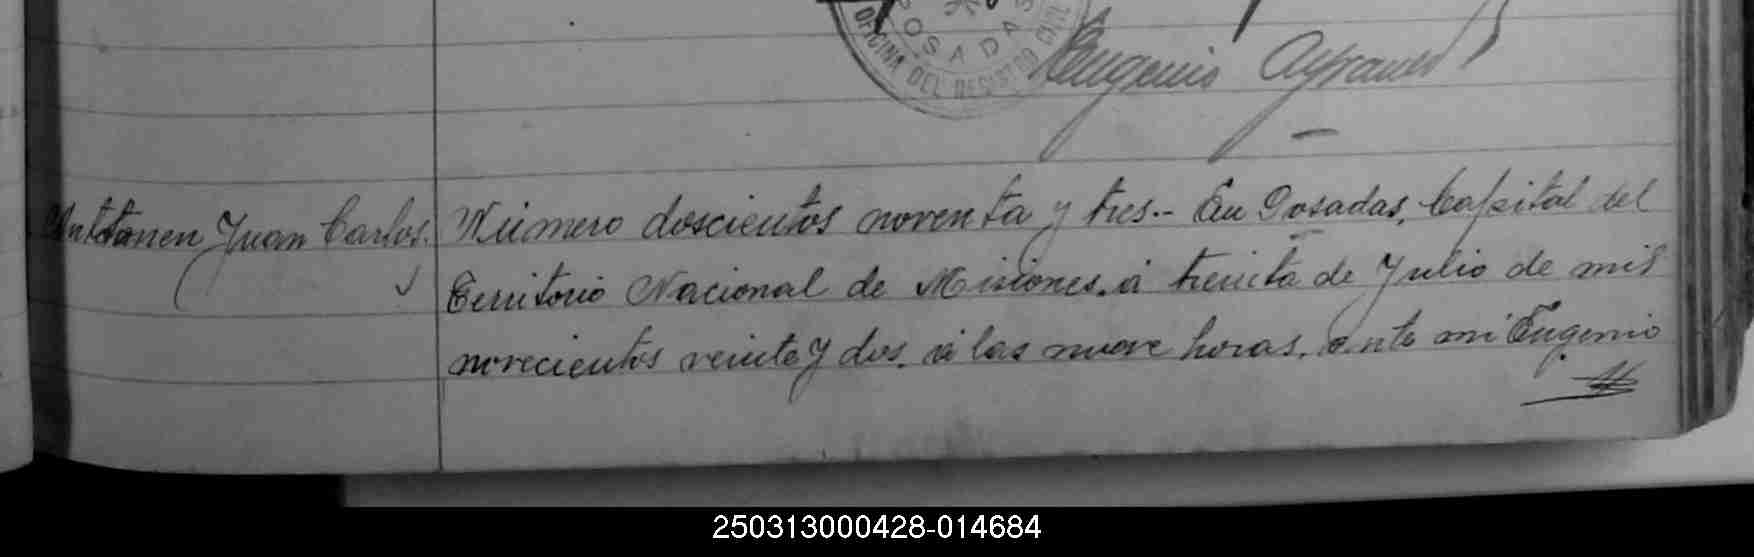 POSADAS
OFICINA DEL REGISTRO CIVIL
Eugenio
Juan Carlos. Número doscientos noventa y tres.- En Posadas, Capital del
Territorio Nacional de Misiones, á treinta de Julio de mil
novecientos veinte y dos, á las nueve horas, ante mi Eugenio
250313000428-014684